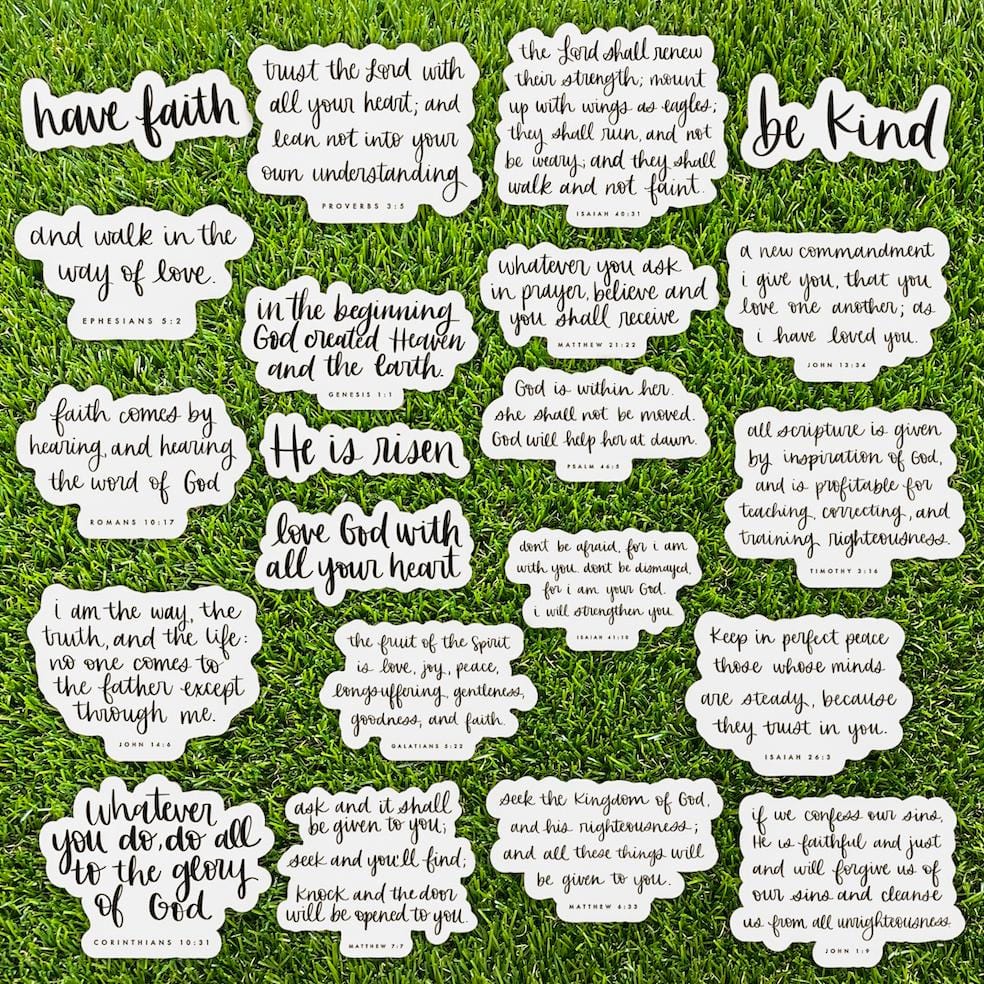 have faith
trust the Lord with
all your heart; and
lean not into your
own understanding
PROVERBS 3:5
the Lord shall renew
their strength; mount
up with wings as eagles;
they shall run, and not
be weary; and they shall
walk and not faint.
ISAIAH 40:31
be kind
and walk in the
way of love.
EPHESIANS 5:2
in the beginning
God created Heaven
and the Earth.
GENESIS 1:1
whatever you ask
in prayer, believe and
you shall receive
MATTHEW 21:22
a new commandment
i give you, that you
love one another; as
i have loved you.
JOHN 13:34
faith comes by
hearing, and hearing
the word of God
ROMANS 10:17
He is risen
God is within her.
she shall not be moved.
God will help her at dawn.
PSALM 46:5
all scripture is given
by inspiration of God,
and is profitable for
teaching, correcting, and
training righteousness.
TIMOTHY 3:16
love God with
all your heart
don't be afraid, for i am
with you. don't be dismayed,
for i am your God.
i will strengthen you.
ISAIAH 41:10
i am the way, the
truth, and the life:
no one comes to
the father except
through me.
JOHN 14:6
the fruit of the Spirit
is love, joy, peace,
longsuffering, gentleness,
goodness, and faith.
GALATIANS 5:22
Keep in perfect peace
those whose minds
are steady, because
they trust in you.
ISAIAH 26:3
whatever
you do, do all
to the glory
of God
CORINTHIANS 10:31
ask and it shall
be given to you;
seek and you'll find;
knock and the door
will be opened to you.
MATTHEW 7:7
seek the Kingdom of God,
and his righteousness;
and all these things will
be given to you.
MATTHEW 6:33
if we confess our sins,
He is faithful and just
and will forgive us of
our sins and cleanse
us from all unrighteousness.
JOHN 1:9